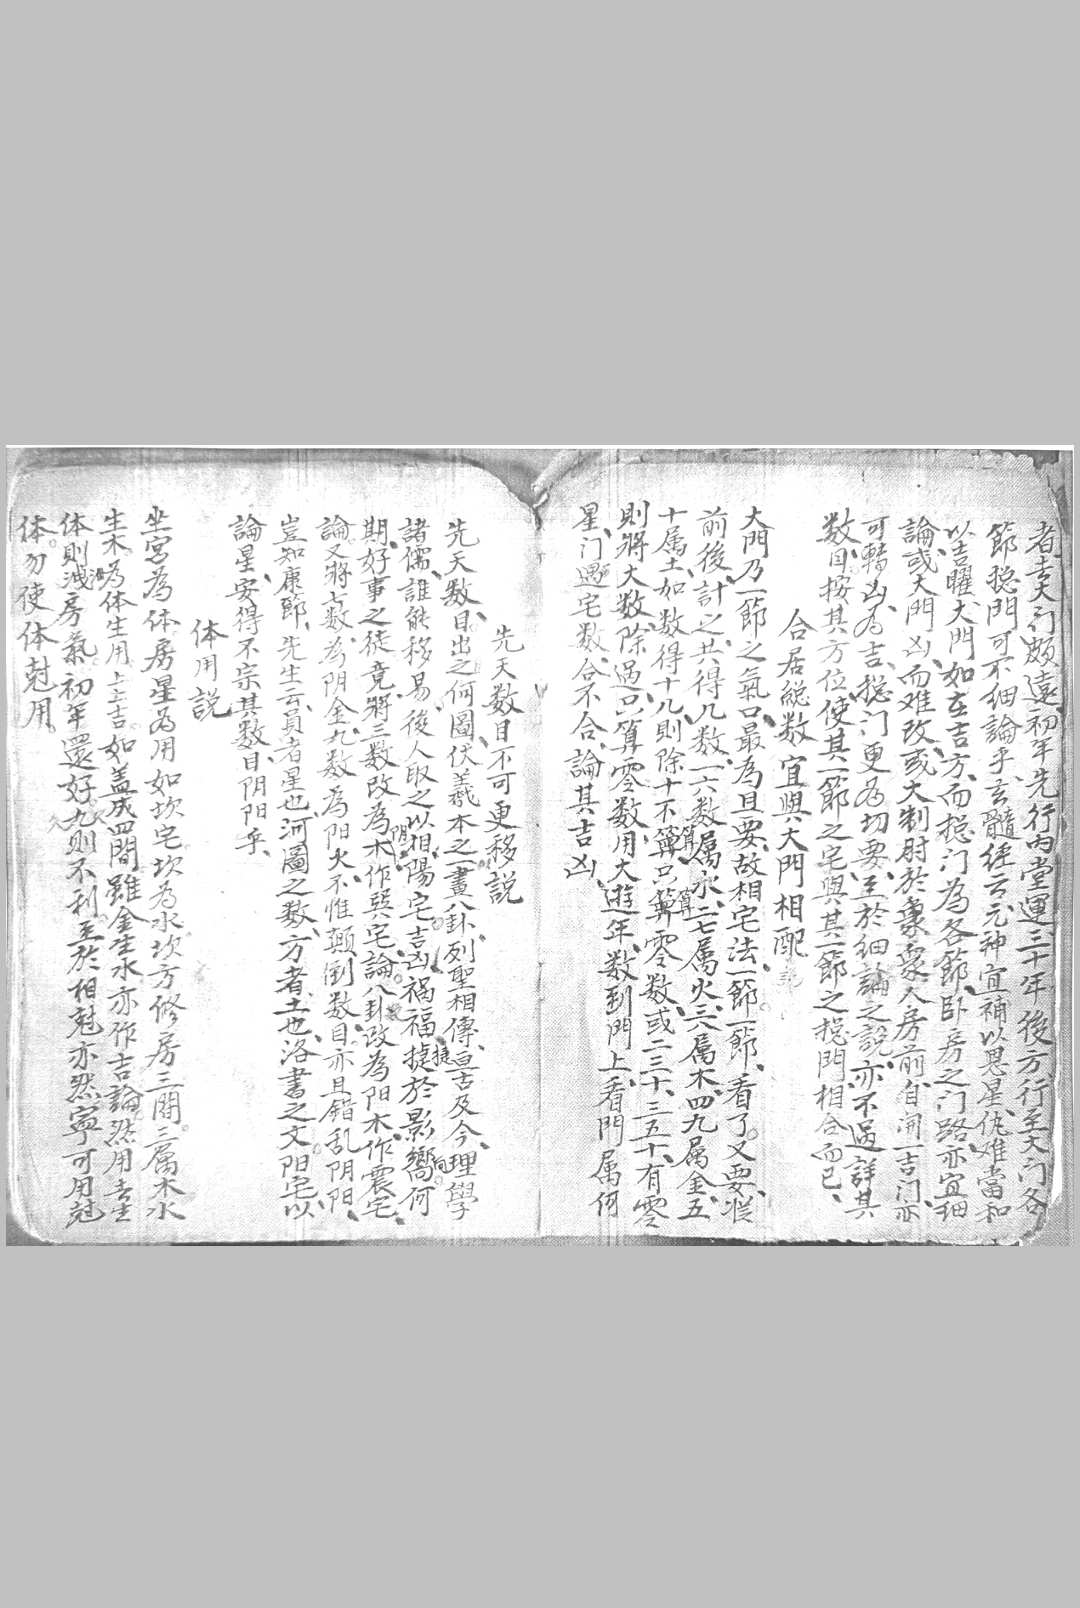 者去大门頗遠初年先行内堂運三十年後方行至大门各
節揔門可不细論乎玄髓经云元神宜補以恩星仇难當和
以吉曜大門如在吉方而揔门為各節卧房之门路亦宜细
論或大門凶而难改或大制肘於衆衆人房前自闹一吉门亦
可轉凶為吉揔门更為切要至於细論之説亦不過詳其
数目按其方位使其一節之宅與其一節之揔門相合而已
合居緫数宜與大門相配
大門乃一節之氣口最為且要故相宅法一節一節看了又要從
前後計之共得几数一六数属水二七属火三八属木四九属金五
十属土如数得十几則除十不算只算零数或二三十三五十有零
則將大数除過只算零数用大遊年数到門上看門属何
星门遇宅数合不合論其吉凶
先天数目不可更移説
先天数目出之何圖伏羲本之一畫八卦列聖相傳亘古及今理學
諸儒誰能移易後人取之以相陽宅吉凶禍福捷於影嚮何
期好事之徒竟將三数改為木作巽宅論八卦改為阳木作震宅
論又將七数為阴金九数為阳火不惟顛倒数目亦且錯乱阴阳
豈知康節先生云員者星也河圖之数方者土也洛書之文阳宅以
論星安得不宗其数目阴阳乎
体用説
坐宮為体房星為用如坎宅坎為水坎方修房三間三属木水
生木為体生用上上吉如盖成四間雖金生水亦作吉論然用去生
体則洩房氣初年還好久則不利至於相尅亦然寧可用尅
体勿使体尅用